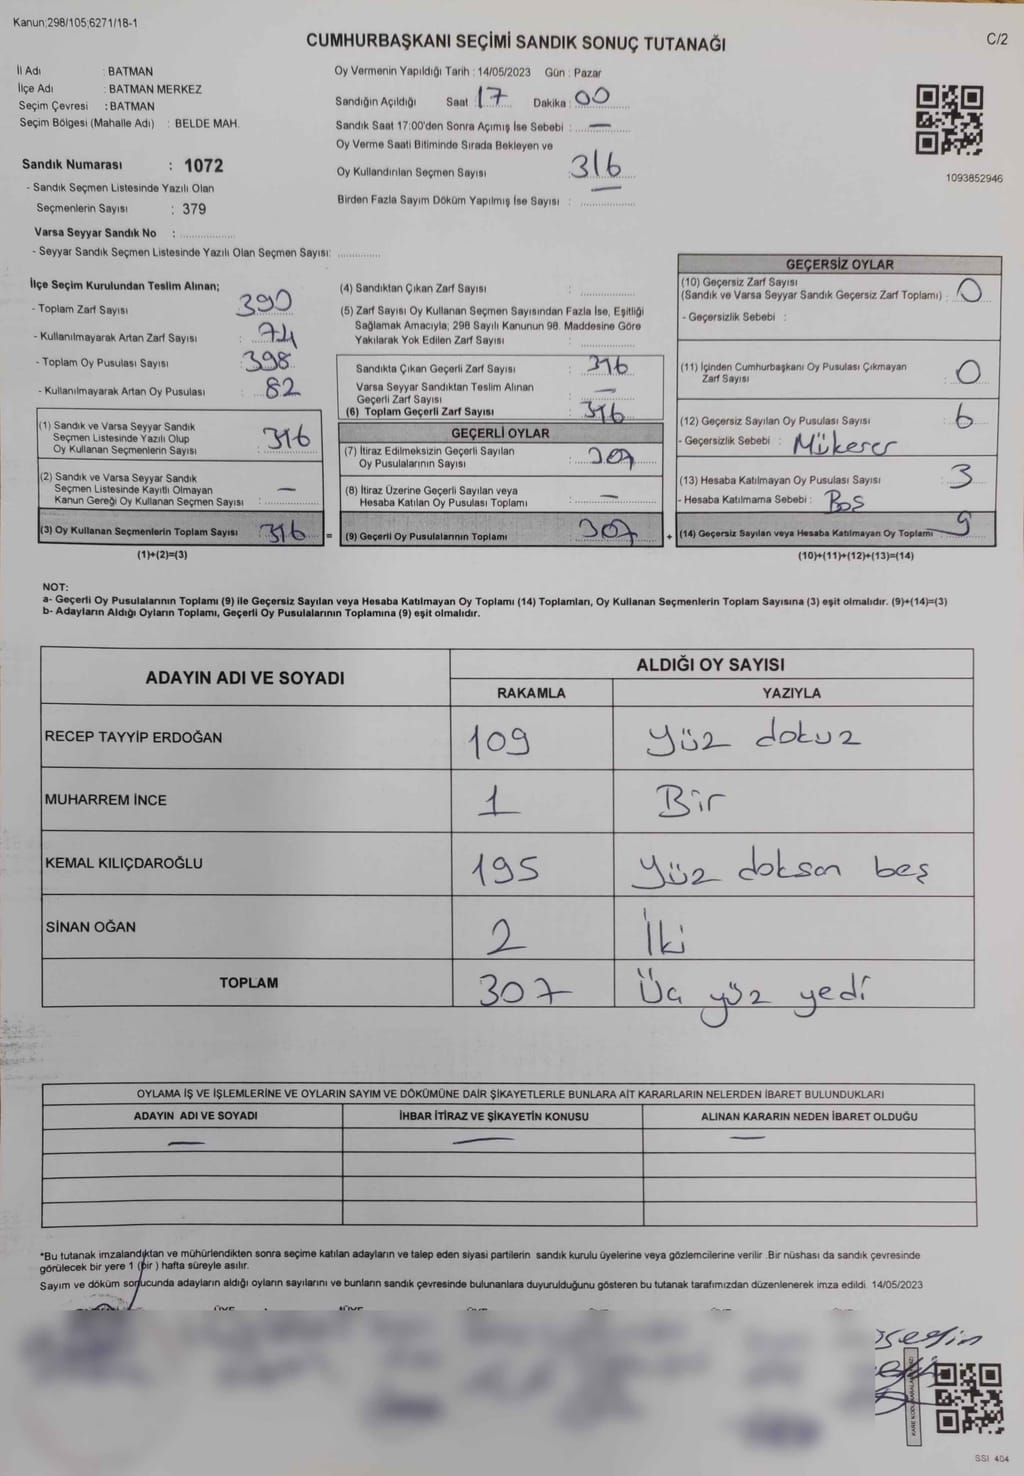 Kanun;298/105;6271/18-1
CUMHURBAŞKANI SEÇİMİ SANDIK SONUÇ TUTANAĞI
C/2
İl Adı : BATMAN
İlçe Adı : BATMAN MERKEZ
Seçim Çevresi : BATMAN
Seçim Bölgesi (Mahalle Adı) : BELDE MAH.
Sandık Numarası : 1072
- Sandık Seçmen Listesinde Yazılı Olan
Seçmenlerin Sayısı : 379
Varsa Seyyar Sandık No :
- Seyyar Sandık Seçmen Listesinde Yazılı Olan Seçmen Sayısı:
Oy Vermenin Yapıldığı Tarih : 14/05/2023 Gün : Pazar
Sandığın Açıldığı Saat : 17 Dakika : 00
Sandık Saat 17:00'den Sonra Açımış İse Sebebi : —
Oy Verme Saati Bitiminde Sırada Bekleyen ve
Oy Kullandırılan Seçmen Sayısı : 316
Birden Fazla Sayım Döküm Yapılmış İse Sayısı :
1093852946
İlçe Seçim Kurulundan Teslim Alınan;
- Toplam Zarf Sayısı : 390
- Kullanılmayarak Artan Zarf Sayısı : 74
- Toplam Oy Pusulası Sayısı : 398
- Kullanılmayarak Artan Oy Pusulası : 82
(1) Sandık ve Varsa Seyyar Sandık
Seçmen Listesinde Yazılı Olup
Oy Kullanan Seçmenlerin Sayısı : 316
(2) Sandık ve Varsa Seyyar Sandık
Seçmen Listesinde Kayıtlı Olmayan
Kanun Gereği Oy Kullanan Seçmen Sayısı : —
(3) Oy Kullanan Seçmenlerin Toplam Sayısı : 316
(1)+(2)=(3)
(4) Sandıktan Çıkan Zarf Sayısı :
(5) Zarf Sayısı Oy Kullanan Seçmen Sayısından Fazla İse, Eşitliği
Sağlamak Amacıyla; 298 Sayılı Kanunun 98. Maddesine Göre
Yakılarak Yok Edilen Zarf Sayısı :
Sandıkta Çıkan Geçerli Zarf Sayısı : 316
Varsa Seyyar Sandıktan Teslim Alınan
Geçerli Zarf Sayısı : —
(6) Toplam Geçerli Zarf Sayısı : 316
GEÇERLİ OYLAR
(7) İtiraz Edilmeksizin Geçerli Sayılan
Oy Pusulalarının Sayısı : 307
(8) İtiraz Üzerine Geçerli Sayılan veya
Hesaba Katılan Oy Pusulası Toplamı : —
= (9) Geçerli Oy Pusulalarının Toplamı : 307
GEÇERSİZ OYLAR
(10) Geçersiz Zarf Sayısı
(Sandık ve Varsa Seyyar Sandık Geçersiz Zarf Toplamı) : 0
- Geçersizlik Sebebi :
(11) İçinden Cumhurbaşkanı Oy Pusulası Çıkmayan
Zarf Sayısı : 0
(12) Geçersiz Sayılan Oy Pusulası Sayısı : 6
- Geçersizlik Sebebi : Mükerer
(13) Hesaba Katılmayan Oy Pusulası Sayısı : 3
- Hesaba Katılmama Sebebi : Boş
+ (14) Geçersiz Sayılan veya Hesaba Katılmayan Oy Toplamı 9
(10)+(11)+(12)+(13)=(14)
NOT:
a- Geçerli Oy Pusulalarının Toplamı (9) ile Geçersiz Sayılan veya Hesaba Katılmayan Oy Toplamı (14) Toplamları, Oy Kullanan Seçmenlerin Toplam Sayısına (3) eşit olmalıdır. (9)+(14)=(3)
b- Adayların Aldığı Oyların Toplamı, Geçerli Oy Pusulalarının Toplamına (9) eşit olmalıdır.
ADAYIN ADI VE SOYADI
ALDIĞI OY SAYISI
RAKAMLA YAZIYLA
RECEP TAYYİP ERDOĞAN 109 Yüz dokuz
MUHARREM İNCE 1 Bir
KEMAL KILIÇDAROĞLU 195 Yüz doksan beş
SİNAN OĞAN 2 İki
TOPLAM 307 Üç yüz yedi
OYLAMA İŞ VE İŞLEMLERİNE VE OYLARIN SAYIM VE DÖKÜMÜNE DAİR ŞİKAYETLERLE BUNLARA AİT KARARLARIN NELERDEN İBARET BULUNDUKLARI
ADAYIN ADI VE SOYADI İHBAR İTİRAZ VE ŞİKAYETİN KONUSU ALINAN KARARIN NEDEN İBARET OLDUĞU
— — —
*Bu tutanak imzalandıktan ve mühürlendikten sonra seçime katılan adayların ve talep eden siyasi partilerin sandık kurulu üyelerine veya gözlemcilerine verilir .Bir nüshası da sandık çevresinde
görülecek bir yere 1 (bir ) hafta süreyle asılır.
Sayım ve döküm sonucunda adayların aldığı oyların sayılarını ve bunların sandık çevresinde bulunanlara duyurulduğunu gösteren bu tutanak tarafımızdan düzenlenerek imza edildi. 14/05/2023
SSI 404